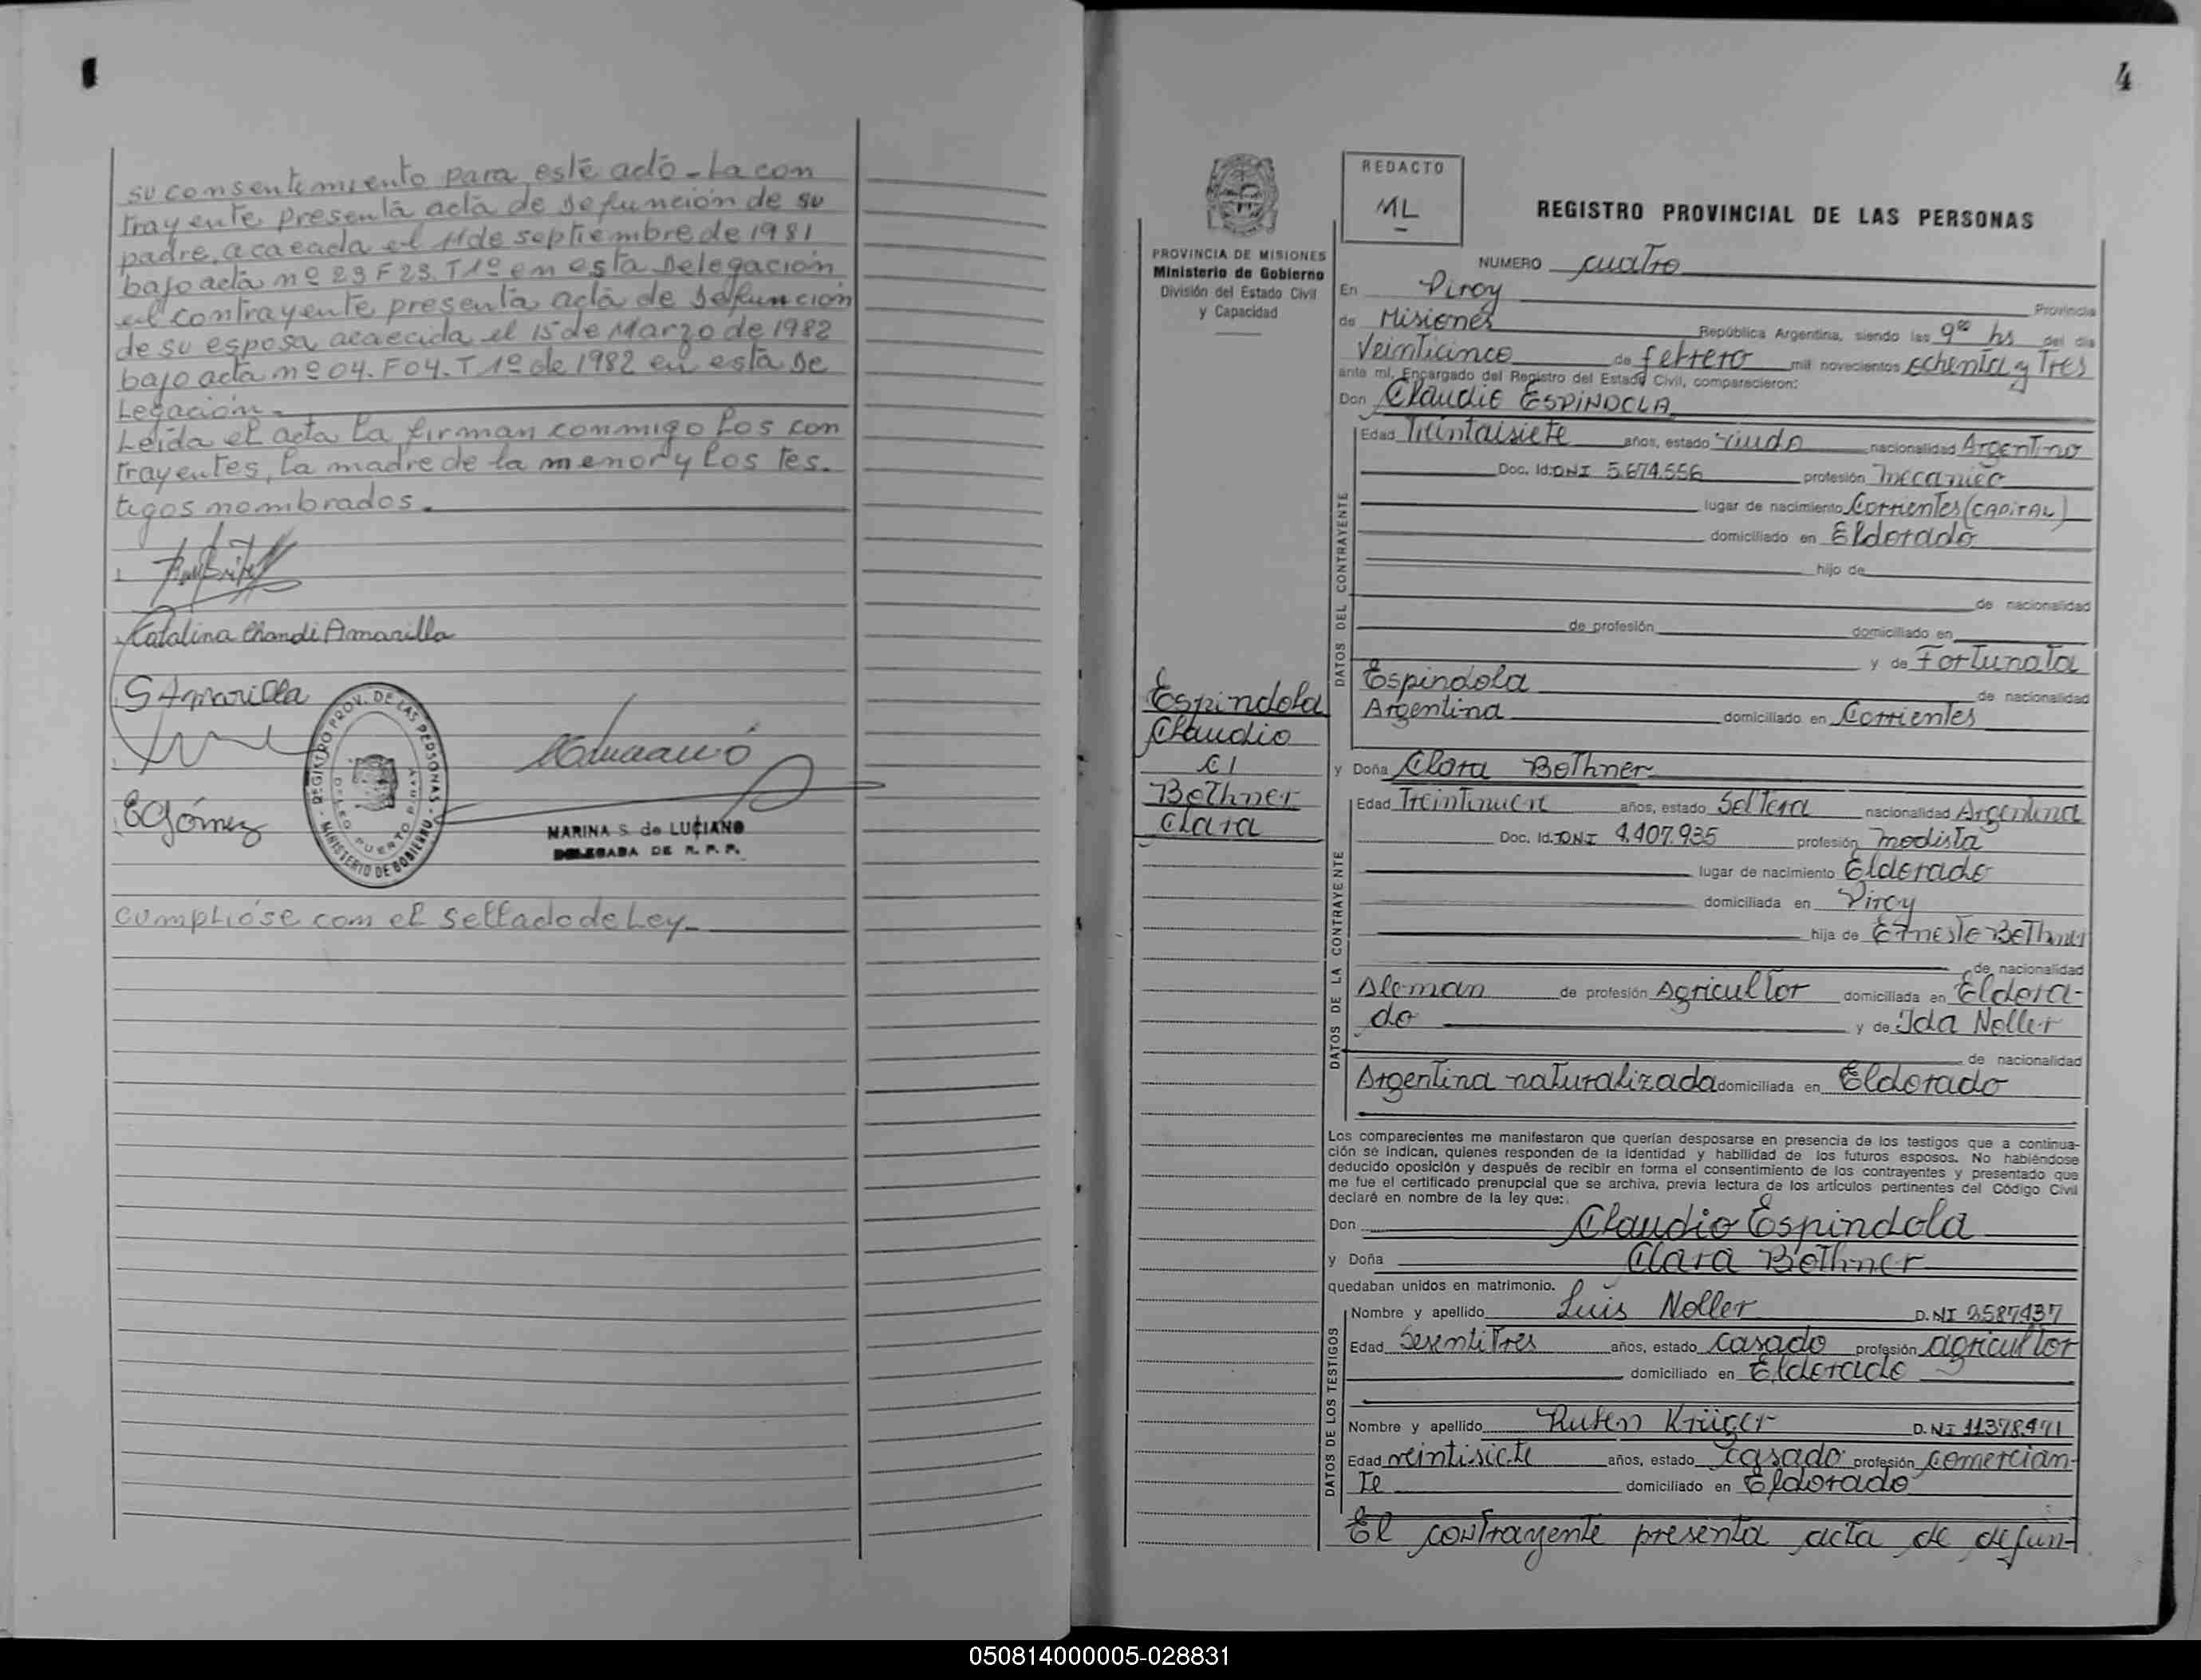 su consentimiento para este acto - La con
trayente presenta acta de defunción de su
padre, acaecida el 11 de septiembre de 1981
bajo acta nº 23 F 23. T 1º en esta Delegación
el contrayente presenta acta de defunción
de su esposa acaecida el 15 de Marzo de 1982
bajo acta nº 04. F 04. T 1º de 1982 en esta De
Legación.
Leida el acta la firman conmigo los con
trayentes, la madre de la menor y los tes.
tigos nombrados.
Catalina Chandi Amarilla
S Amarilla
REGISTRO PROV. DE LAS PERSONAS - MINISTERIO DE GOBIERNO
MARINA S. de LUCIANO
DELEGADA DE R. P. P.
E Gómez
cumplióse com el Sellado de Ley
4
PROVINCIA DE MISIONES
Ministerio de Gobierno
División del Estado Civil
y Capacidad
REDACTO
ML
REGISTRO PROVINCIAL DE LAS PERSONAS
NUMERO cuatro
En Piray Provincia
de Misiones República Argentina, siendo las 9⁰⁰ hs del día
Veinticinco de febrero mil novecientos ochenta y Tres
ante mí, Encargado del Registro del Estado Civil, comparecieron:
Don Claudio ESPINDOLA
DATOS DEL CONTRAYENTE
Edad Treintaisiete años, estado viudo nacionalidad Argentino
Doc. Id. DNI 5.674.556 profesión mecanico
lugar de nacimiento Corrientes (CAPITAL)
domiciliado en Eldorado
hijo de
de nacionalidad
de profesión domiciliado en
y de Fortunata
Espindola de nacionalidad
Argentina domiciliado en Corrientes
Espindola
Claudio
c/
Bothner
Clara
y Doña Clara Bothner
DATOS DE LA CONTRAYENTE
Edad Treintinueve años, estado Soltera nacionalidad Argentina
Doc. Id. DNI 4.407.935 profesión modista
lugar de nacimiento Eldorado
domiciliada en Piray
hija de Ernesto Bothner
de nacionalidad
Aleman de profesión Agricultor domiciliada en Eldora-
do y de Ida Noller
de nacionalidad
Argentina naturalizada domiciliada en Eldorado
Los comparecientes me manifestaron que querían desposarse en presencia de los testigos que a continua-
ción se indican, quienes responden de la identidad y habilidad de los futuros esposos. No habiéndose
deducido oposición y después de recibir en forma el consentimiento de los contrayentes y presentado que
me fue el certificado prenupcial que se archiva, previa lectura de los artículos pertinentes del Código Civil
declaré en nombre de la ley que:
Don Claudio Espindola
y Doña Clara Bothner
quedaban unidos en matrimonio.
DATOS DE LOS TESTIGOS
Nombre y apellido Luis Noller D.NI 2587437
Edad Sesentitres años, estado casado profesión agricultor
domiciliado en Eldorado
Nombre y apellido Ruben Krüger D.NI 11378471
Edad veintisiete años, estado casado profesión comercian-
te domiciliado en Eldorado
El contrayente presenta acta de defun-
050814000005-028831